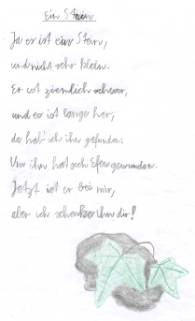 Ein Stein
Ja er ist ein Stein,
und nicht sehr klein.
Er ist ziemlich schwer,
und er ist lange her,
da hab' ich ihn gefunden.
Um ihn hat sich Efeu gewunden.
Jetzt ist er bei mir,
aber ich schenke ihn dir!